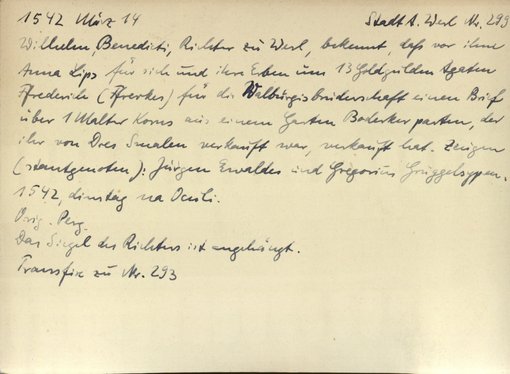 1542 März 14 Stadt A. Werl Nr. 299
Wilhelm, Benedicti, Richter zu Werl, bekennt, daß vor ihm
Anna Lips für sich und ihre Erben um 13 Goldgulden Agaten
Frederich (Ffrerkes) für die Walburgisbruderschaft einen Brief
über 1 Malter Korns aus einem Garten Boderker parten, der
ihr von Dres Smalen verkauft war, verkauft hat. Zeugen
(stantgenoten): Jürgen Ewaldes und Gregorius Gruggelsypen.
1542, dinstag na Oculi.
Orig. Perg.
Das Siegel des Richters ist angehängt.
Transfix zu Nr. 293